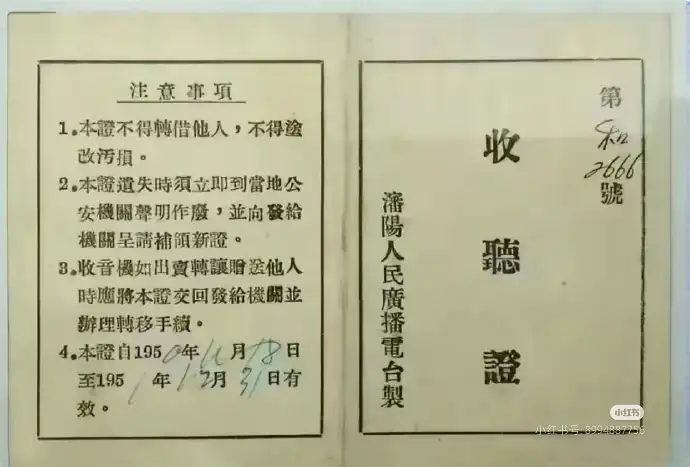 注意事項
1. 本證不得轉借他人，不得塗
改汚損。
2. 本證遺失時須立即到當地公
安機關聲明作廢，並向發給
機關呈請補領新證。
3. 收音機如出賣轉讓贈送他人
時應將本證交回發給機關並
辦理轉移手續。
4. 本證自1950年11月18日
至1951年12月31日有
效。
第
和
2666
號
收聽證
瀋陽人民廣播電台製
小红书
小红书号 8994887756